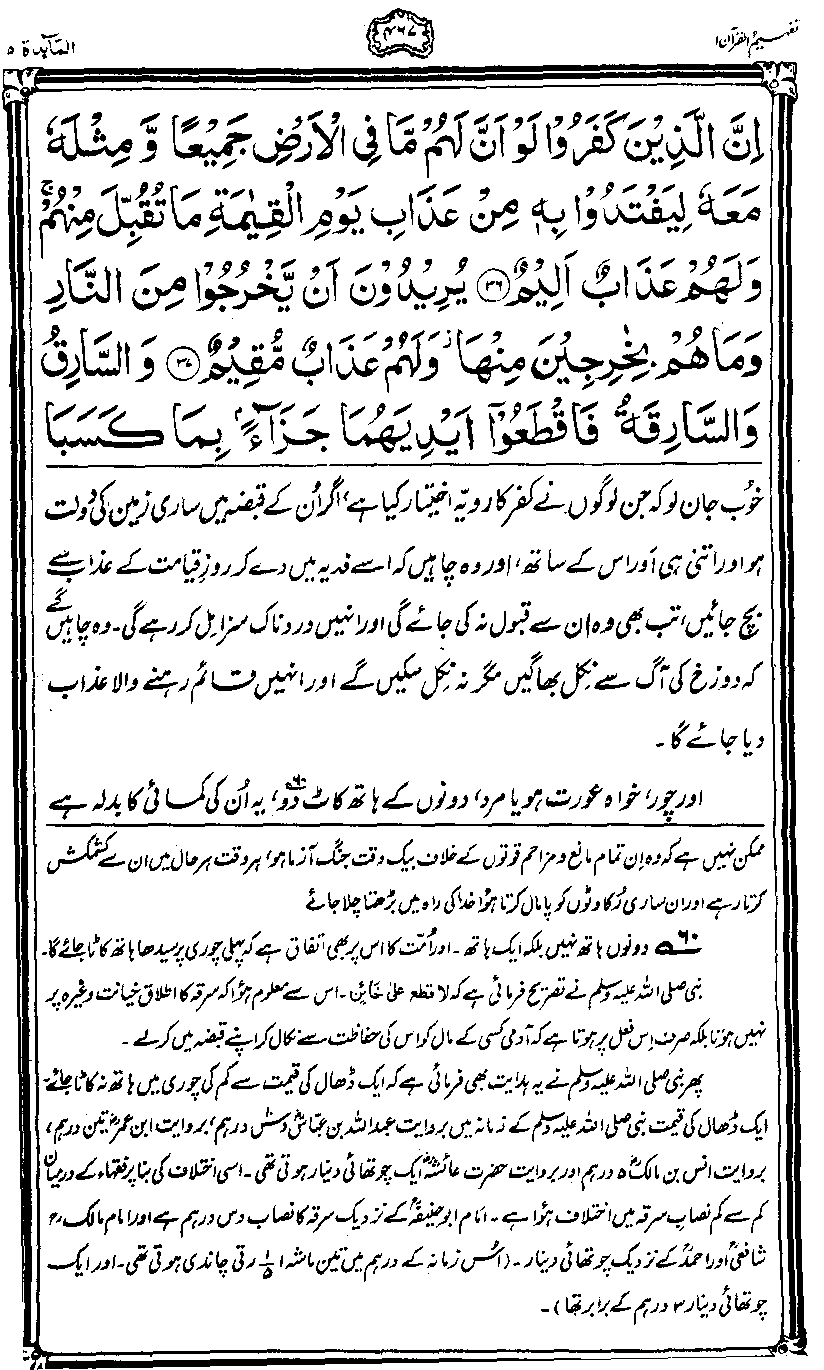 تفہیم القرآن ۱
۴۶۷
المآئدة ۵
اِنَّ الَّذِيْنَ كَفَرُوْا لَوْ اَنَّ لَهُمْ مَّا فِي الْاَرْضِ جَمِيْعًا وَّ مِثْلَهٗ
مَعَهٗ لِيَفْتَدُوْا بِهٖ مِنْ عَذَابِ يَوْمِ الْقِيٰمَةِ مَا تُقُبِّلَ مِنْهُمْ ۚ
وَلَهُمْ عَذَابٌ اَلِيْمٌ ﴿۳۶﴾ يُرِيْدُوْنَ اَنْ يَّخْرُجُوْا مِنَ النَّارِ
وَمَا هُمْ بِخٰرِجِيْنَ مِنْهَا ۫ وَلَهُمْ عَذَابٌ مُّقِيْمٌ ﴿۳۷﴾ وَالسَّارِقُ
وَالسَّارِقَةُ فَاقْطَعُوْۤا اَيْدِيَهُمَا جَزَآءًۢ بِمَا كَسَبَا
خوب جان لو کہ جن لوگوں نے کفر کا رویّہ اختیار کیا ہے، اگر اُن کے قبضہ میں ساری زمین کی دَولت
ہو اور اتنی ہی اَور اس کے ساتھ، اور وہ چاہیں کہ اسے فدیہ میں دے کر روزِ قیامت کے عذاب سے
بچ جائیں، تب بھی وہ اِن سے قبول نہ کی جائے گی اور انہیں دردناک سزا مل کر رہے گی۔ وہ چاہیں گے
کہ دوزخ کی آگ سے نِکل بھاگیں مگر نہ نِکل سکیں گے اور انہیں قائم رہنے والا عذاب
دیا جائے گا۔
اور چور، خواہ عورت ہو یا مرد، دونوں کے ہاتھ کاٹ دو،۶۰ یہ اُن کی کمائی کا بدلہ ہے
ممکن نہیں ہے کہ وہ اِن تمام مانع و مزاحم قوتوں کے خلاف بیک وقت جنگ آزما ہو، ہر وقت ہر حال میں ان سے کشمکش
کرتا رہے اور ان ساری رُکاوٹوں کو پامال کرتا ہُوا خدا کی راہ میں بڑھتا چلا جائے
۶۰ دونوں ہاتھ نہیں بلکہ ایک ہاتھ۔ اور اُمّت کا اس پر بھی اتفاق ہے کہ پہلی چوری پر سیدھا ہاتھ کاٹا جائے گا۔
نبی صلی اللہ علیہ وسلم نے تصریح فرمائی ہے کہ لا قطع علیٰ خائن۔ اس سے معلوم ہُوا کہ سرقہ کا اطلاق خیانت وغیرہ پر
نہیں ہوتا بلکہ صرف اِس فعل پر ہوتا ہے کہ آدمی کسی کے مال کو اس کی حفاظت سے نکال کر اپنے قبضہ میں کر لے۔
پھر نبی صلی اللہ علیہ وسلم نے یہ ہدایت بھی فرمائی ہے کہ ایک ڈھال کی قیمت سے کم کی چوری میں ہاتھ نہ کاٹا جائے۔
ایک ڈھال کی قیمت نبی صلی اللہ علیہ وسلم کے زمانہ میں بروایت عبداللہ بن عباسؓ دس درہم، بروایت ابن عمرؓ تین درہم،
بروایت انس بن مالکؓ ۵ درہم اور بروایت حضرت عائشہؓ ایک چوتھائی دینار ہوتی تھی۔ اسی اختلاف کی بنا پر فقہاء کے درمیان
کم سے کم نصابِ سرقہ میں اختلاف ہُوا ہے۔ امام ابو حنیفہؒ کے نزدیک سرقہ کا نصاب دس درہم ہے اور امام مالکؒ،
شافعیؒ اور احمدؒ کے نزدیک چوتھائی دینار۔ (اُس زمانہ کے درہم میں تین ماشہ ۱ ۱/۵ رتی چاندی ہوتی تھی۔ اور ایک
چوتھائی دینار ۳ درہم کے برابر تھا)۔